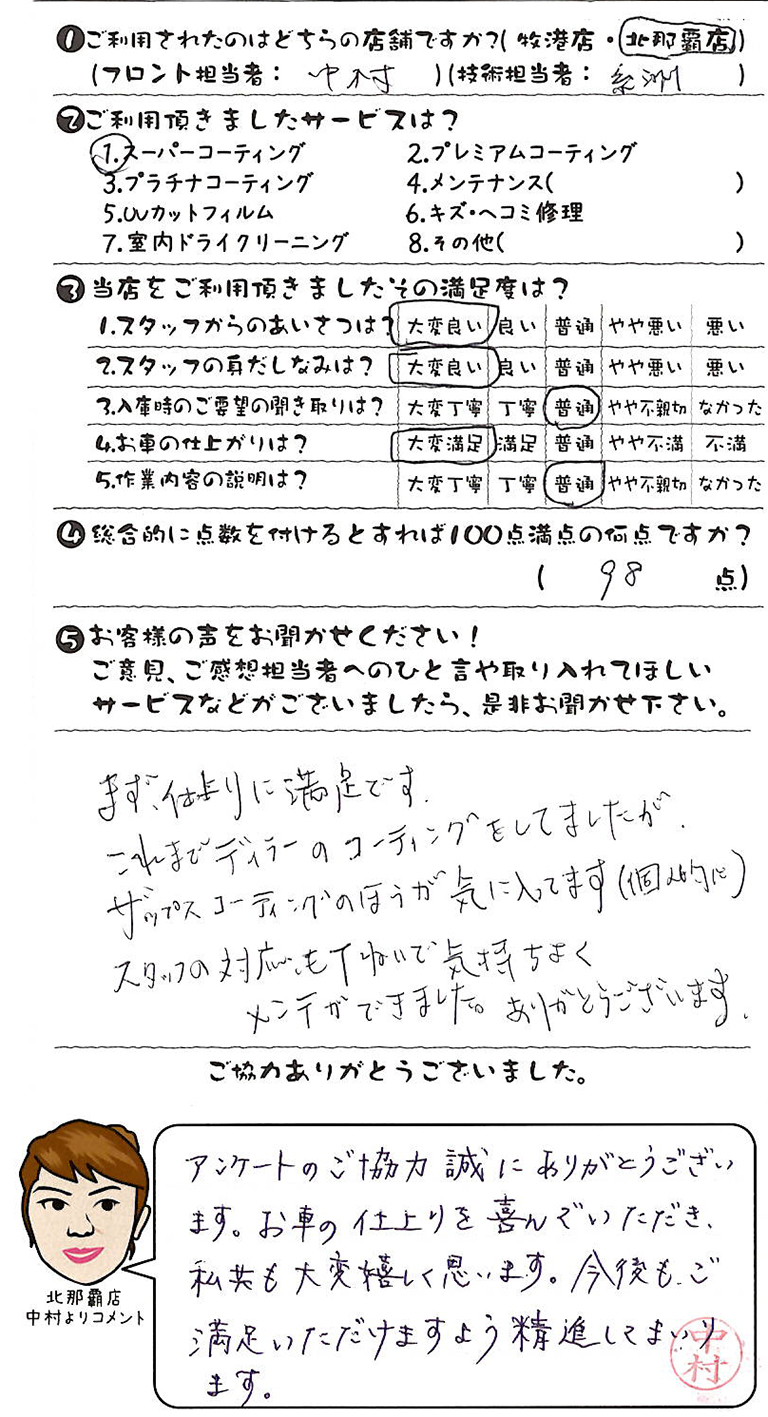 ❶ご利用されたのはどちらの店舗ですか?(牧港店・北那覇店)
(フロント担当者: 中村 )(技術担当者: 糸洲 )
❷ご利用頂きましたサービスは?
1.スーパーコーティング 2.プレミアムコーティング
3.プラチナコーティング 4.メンテナンス( )
5.UVカットフィルム 6.キズ・ヘコミ修理
7.室内ドライクリーニング 8.その他( )
❸当店をご利用頂きましたその満足度は?
1.スタッフからのあいさつは? 大変良い 良い 普通 やや悪い 悪い
2.スタッフの身だしなみは? 大変良い 良い 普通 やや悪い 悪い
3.入庫時のご要望の聞き取りは? 大変丁寧 丁寧 普通 やや不親切 なかった
4.お車の仕上がりは? 大変満足 満足 普通 やや不満 不満
5.作業内容の説明は? 大変丁寧 丁寧 普通 やや不親切 なかった
❹総合的に点数を付けるとすれば100点満点の何点ですか?
( 98 点)
❺お客様の声をお聞かせください!
ご意見、ご感想担当者へのひと言や取り入れてほしい
サービスなどがございましたら、是非お聞かせ下さい。
まず、仕上りに満足です.
これまでディラーのコーティングをしてましたが、
ザップスコーティングのほうが気に入ってます(個人的に)
スタッフの対応もていねいで気持ちよく
メンテができました。ありがとうございます.
ご協力ありがとうございました。
アンケートのご協力誠にありがとうござい
ます。お車の仕上りを喜んでいただき、
私共も大変嬉しく思います。今後も、ご
満足いただけますよう精進してまいり
ます。
中村
北那覇店
中村よりコメント